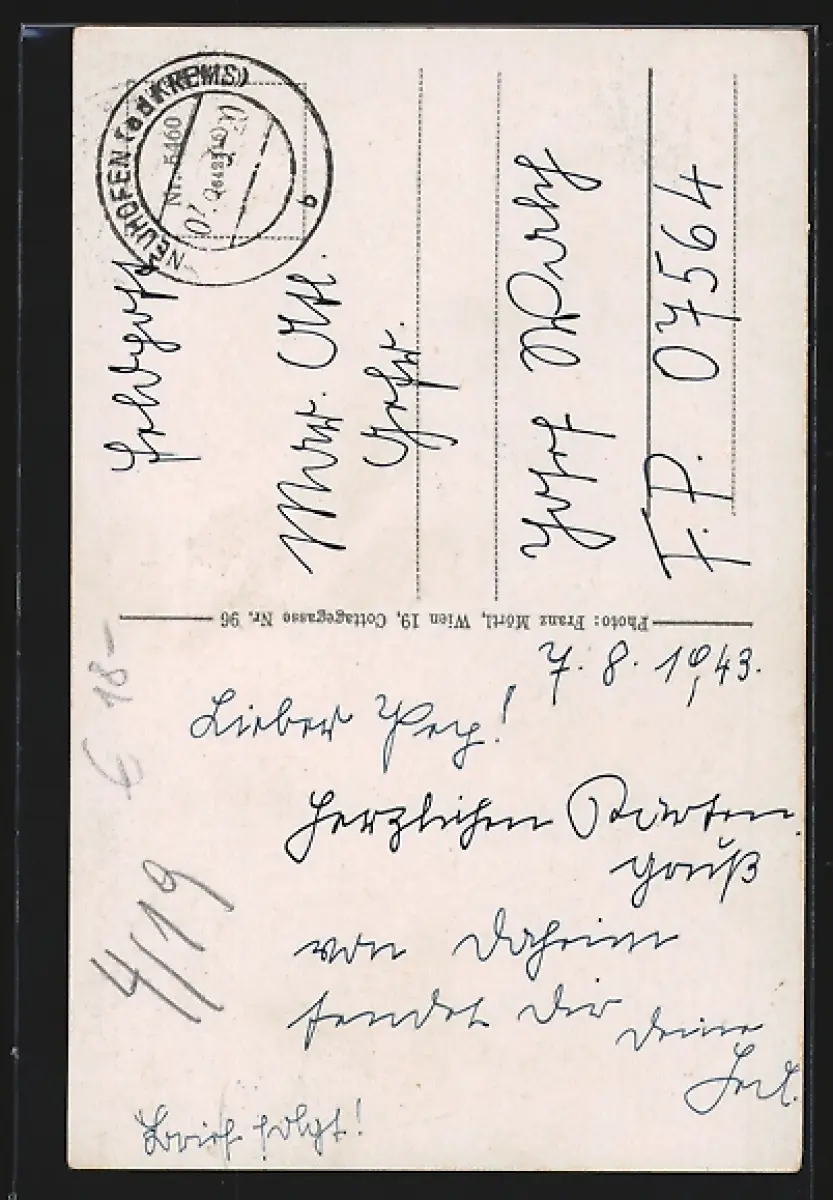 NEUHOFEN (a d KREMS)
Nr. 5460
b
Feldpost
Gefr.
Josef
F.P. 07564
Photo: Franz Mörtl, Wien 19, Cottagegasse Nr. 96
7. 8. 1943.
Lieber Pep!
Herzlichen Karten
gruß
von daheim
sendet Dir Deine
Brief folgt!
€ 18-
4/19